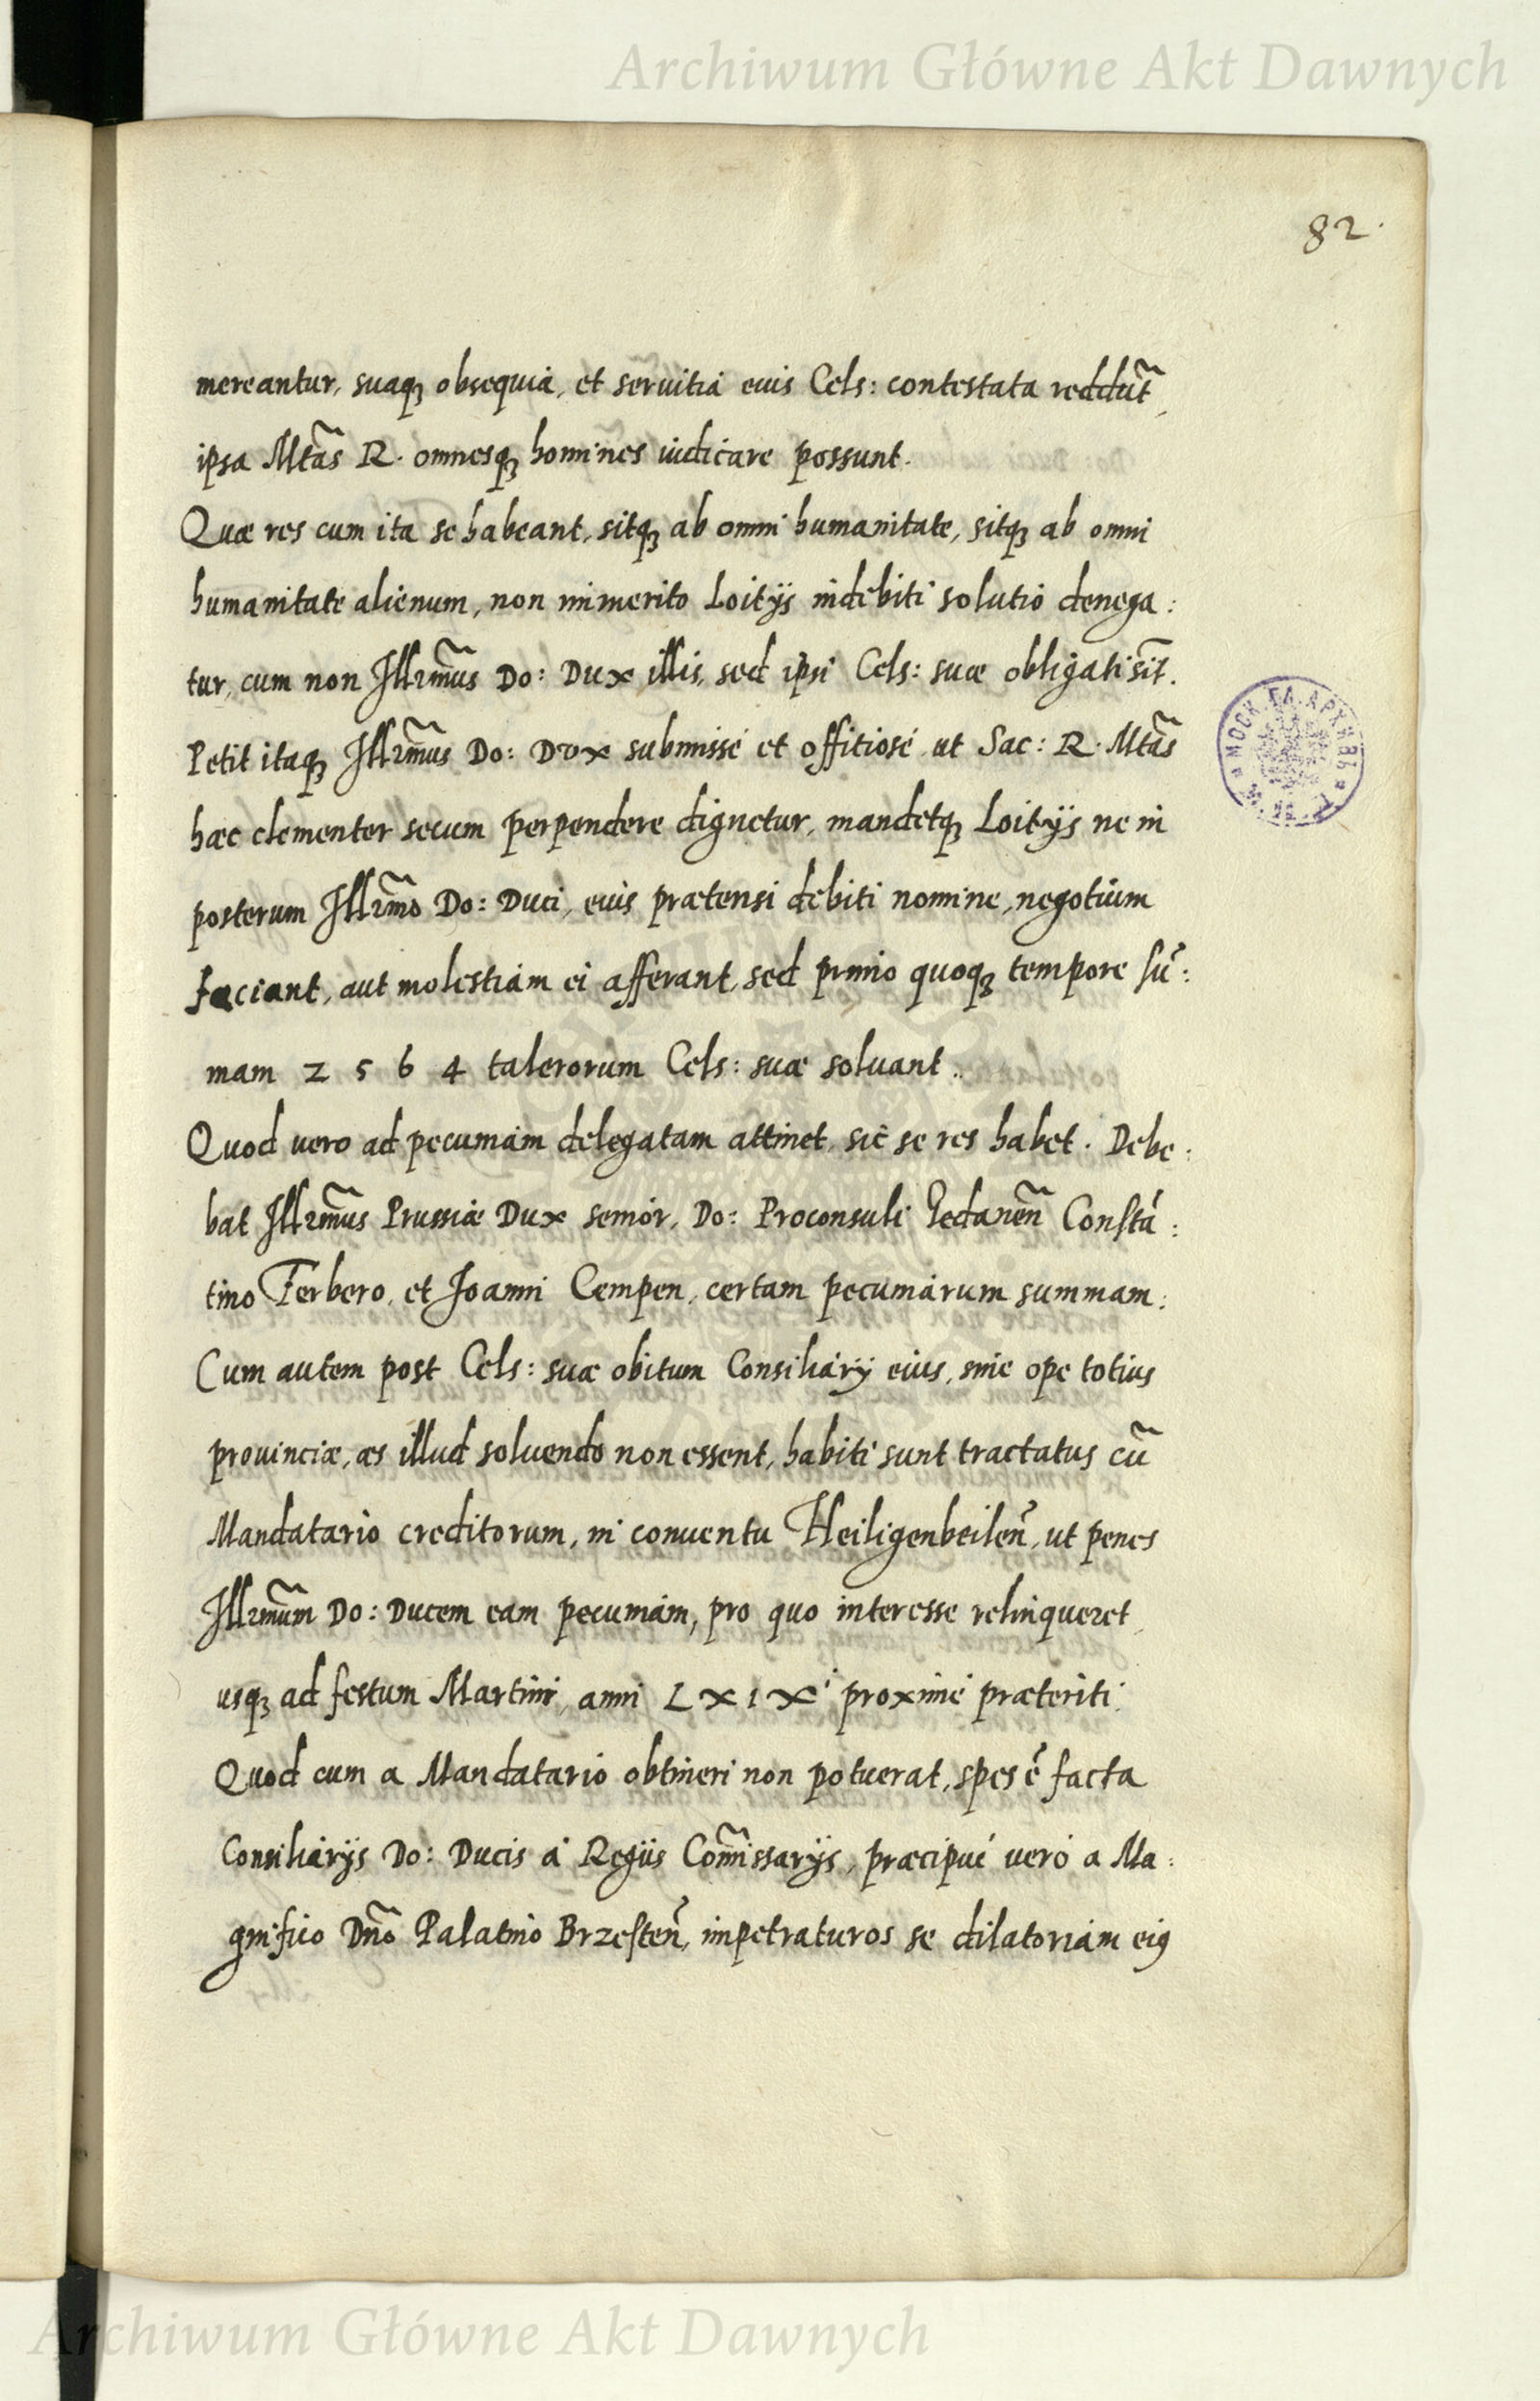 Archiwum Główne Akt Dawnych
82.
mereantur, suaqꝫ obsequia, et seruitia euis Cels: contestata reddũt,
ipsa Mtãs R. omnesqꝫ homines iudicare possunt.
Quæ res cum ita se habeant, sitqꝫ ab omni humanitate, sitqꝫ ab omni
humanitate alienum, non immerito Loitijs indebiti solutio denega:
tur, cum non Illr̃mus Do: Dux illis, sed ipsi Cels: suæ obligati sĩt.
Petit itaqꝫ Illr̃mus Do: Dux submissé et offitiosé ut Sac: R. Mtãs
hæc clementer secum perpendere dignetur, mandetqꝫ Loitijs ne in
posterum Illr̃mo Do: Duci, euis prætensi debiti nomine, negotium
faciant, aut molestiam ei afferant, sed primo quoqꝫ tempore sũ:
mam 2 5 6 4 talerorum Cels: suæ soluant.
Quod vero ad pecuniam delegatam attinet, sic se res habet. Debe:
bat Illr̃mus Prussiæ Dux senior, Do: Proconsuli Gedanen̄ Constã:
tino Ferbero, et Joanni Cempen, certam pecuniarum summam:
Cum autem post Cels: suæ obitum Consiliarij eius, sine ope totius
prouinciæ, æs illud soluendo non essent, habiti sunt tractatus cũ
Mandatario creditorum, in conuentu Heiligenbeilen̄, ut penes
Illr̃mum Do: Ducem eam pecuniam, pro quo interesse relinqueret,
usqꝫ ad festum Martini, anni LXIX proximé præteriti.
Quod cum a Mandatario obtineri non potuerat, spes ẽ facta
Consiliarijs Do: Ducis á Regiis Com̃issarijs, præcipué veró a Ma:
gnifico Dño Palatino Brzesten̄, impetraturos se dilatoriam eiꝰ
МОСК. ГЛ. АРХИВЪ
Archiwum Główne Akt Dawnych